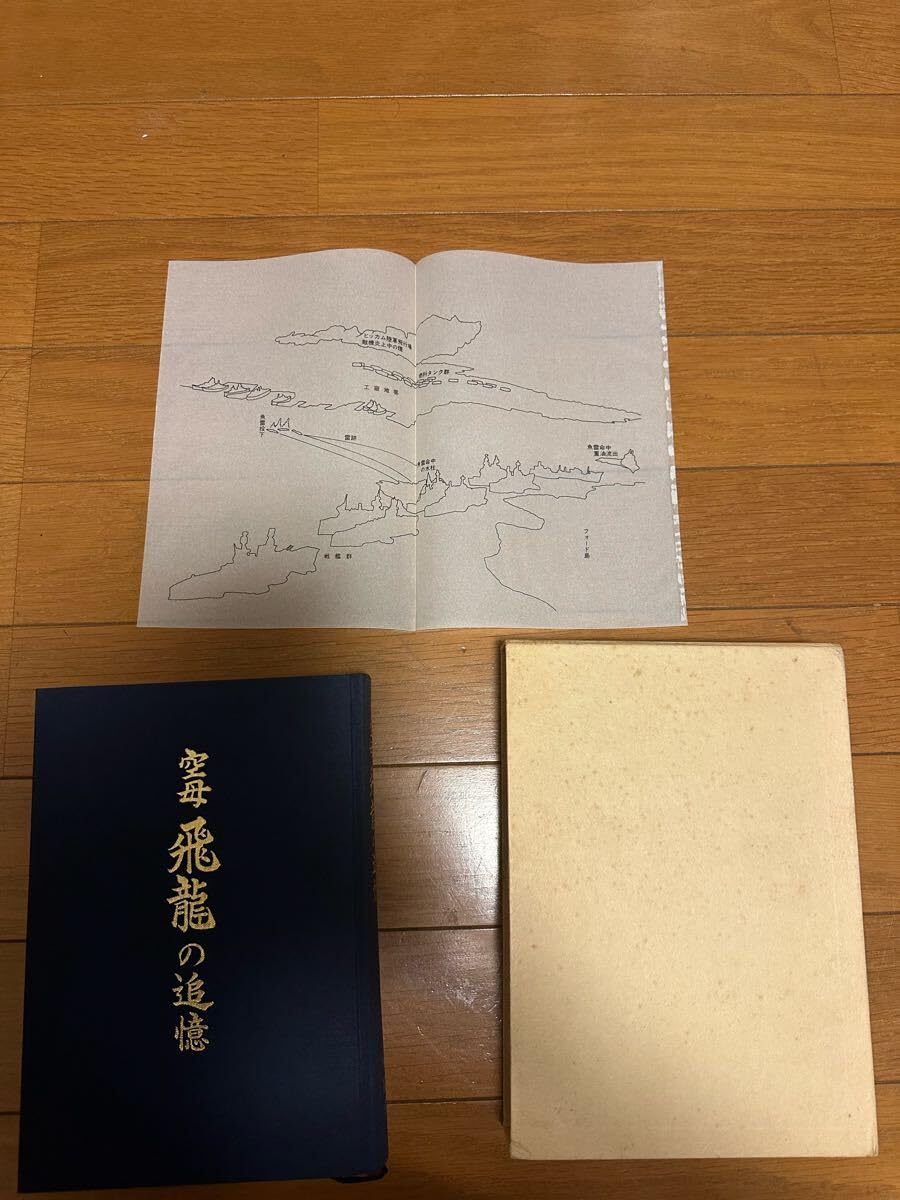 ヒッカム陸軍飛行場
敵機炎上中の煙
燃料タンク群
工廠地帯
魚雷投下
雷跡
魚雷命中
の水柱
魚雷命中
重油流出
フォード島
戦艦群
空母 飛龍の追憶